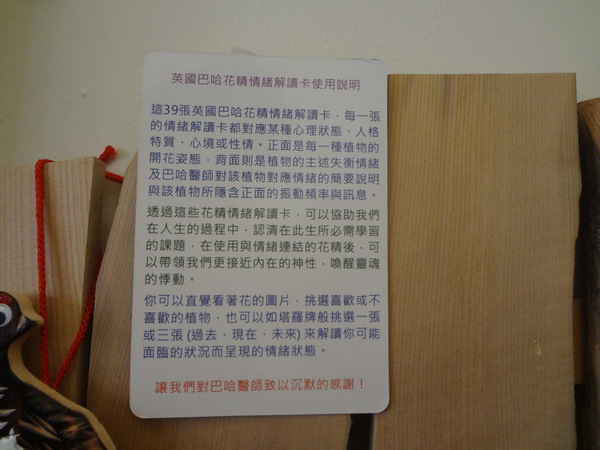 英國巴哈花精情緒解讀卡使用說明
這39張英國巴哈花精情緒解讀卡，每一張
的情緒解讀卡都對應某種心理狀態、人格
特質、心境或性情。正面是每一種植物的
開花姿態，背面則是植物的主述失衡情緒
及巴哈醫師對該植物對應情緒的簡要說明
與該植物所隱含正面的振動頻率與訊息。
透過這些花精情緒解讀卡，可以協助我們
在人生的過程中，認清在此生所必需學習
的課題，在使用與情緒連結的花精後，可
以帶領我們更接近內在的神性，喚醒靈魂
的悸動。
你可以直覺看著花的圖片，挑選喜歡或不
喜歡的植物，也可以如塔羅牌般挑選一張
或三張 (過去、現在、未來) 來解讀你可能
面臨的狀況而呈現的情緒狀態。
讓我們對巴哈醫師致以沉默的感謝！